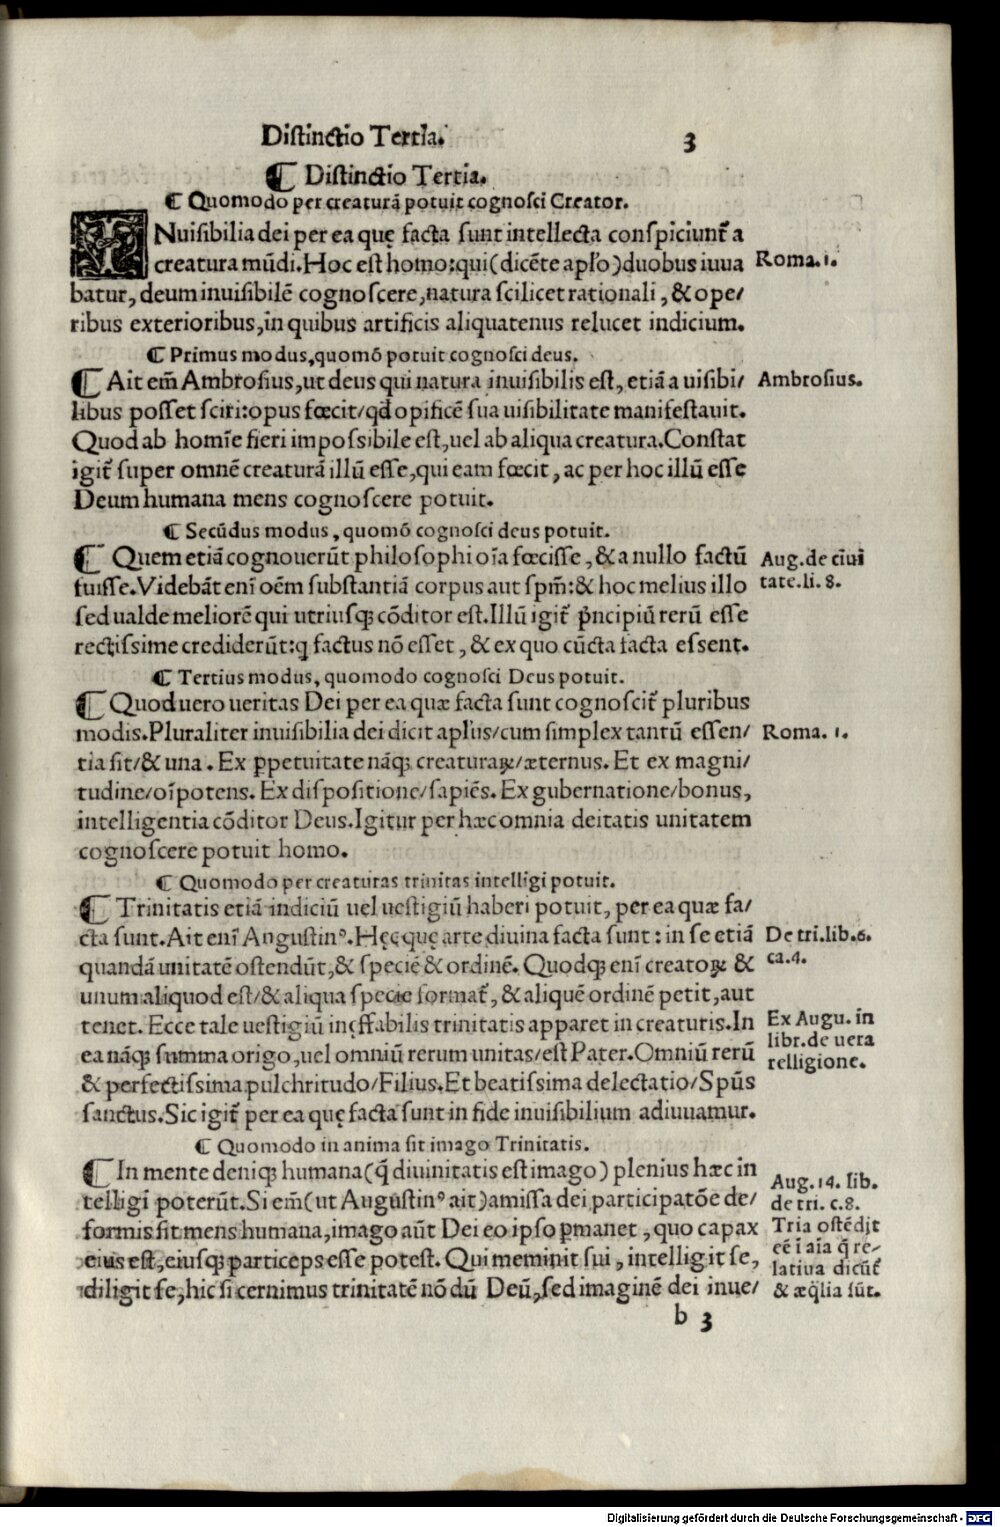 Distinctio Tertia. 3
¶ Distinctio Tertia.
¶ Quomodo per creaturā potuit cognosci Creator.
INuisibilia dei per ea quę facta sunt intellecta conspiciunt᷑ a
creatura mūdi. Hoc est homo: qui (dicēte apl̄o) duobus iuua
Roma. 1.
batur, deum inuisibilē cognoscere, natura scilicet rationali, & ope/
ribus exterioribus, in quibus artificis aliquatenus relucet indicium.
¶ Primus modus, quomō potuit cognosci deus.
¶ Ait em̄ Ambrosius, ut deus qui natura inuisibilis est, etiā a uisibi/
Ambrosius.
libus posset sciri: opus fœcit/ qd̄ opificē sua uisibilitate manifestauit.
Quod ab homīe fieri impossibile est, uel ab aliqua creatura. Constat
igit᷑ super omnē creaturā illū esse, qui eam fœcit, ac per hoc illū esse
Deum humana mens cognoscere potuit.
¶ Secūdus modus, quomō cognosci deus potuit.
¶ Quem etiā cognouerūt philosophi oīa fœcisse, & a nullo factū
Aug. de ciui
fuisse. Videbāt enī oēm substantiā corpus aut spm̄: & hoc melius illo
tate. li. 8.
sed ualde meliorē qui utriusqꝫ cōditor est. Illū igit᷑ p̄ncipiū rerū esse
rectissime crediderūt: q factus nō esset, & ex quo cūcta facta essent.
¶ Tertius modus, quomodo cognosci Deus potuit.
¶ Quod uero ueritas Dei per ea quæ facta sunt cognoscit᷑ pluribus
modis. Pluraliter inuisibilia dei dicit apl̄us/ cum simplex tantū essen/
Roma. 1.
tia sit/ & una. Ex ꝑpetuitate nāqꝫ creaturaꝝ/ æternus. Et ex magni/
tudine/ oīpotens. Ex dispositione/ sapiēs. Ex gubernatione/ bonus,
intelligentia cōditor Deus. Igitur per hæc omnia deitatis unitatem
cognoscere potuit homo.
¶ Quomodo per creaturas trinitas intelligi potuit.
¶ Trinitatis etiā indiciū uel uestigiū haberi potuit, per ea quæ fa/
cta sunt. Ait enī Augustinꝰ. Hęc quę arte diuina facta sunt: in se etiā
De tri. lib. 6.
ca. 4.
quandā unitatē ostendūt, & speciē & ordinē. Quodqꝫ enī creatoꝝ &
unum aliquod est/ & aliqua specie format᷑, & aliquē ordinē petit, aut
tenet. Ecce tale uestigiū ineffabilis trinitatis apparet in creaturis. In
Ex Augu. in
libr. de uera
relligione.
ea nāqꝫ summa origo, uel omniū rerum unitas/ est Pater. Omniū rerū
& perfectissima pulchritudo/ Filius. Et beatissima delectatio/ Spūs
sanctus. Sic igit᷑ per ea quę facta sunt in fide inuisibilium adiuuamur.
¶ Quomodo in anima sit imago Trinitatis.
¶ In mente deniqꝫ humana (q̄ diuinitatis est imago) plenius hæc in
telligi poterūt. Si em̄ (ut Augustinꝰ ait) amissa dei participatōe de/
Aug. 14. lib.
de tri. c. 8.
formis sit mens humana, imago aūt Dei eo ipso ꝑmanet, quo capax
Tria ostēdit
eius est, eiusqꝫ particeps esse potest. Qui meminit sui, intelligit se,
eē ī aīa q̄ re-
latiua dicūt᷑
diligit se, hic si cernimus trinitatē nō dū Deū, sed imaginē dei inue/
& æq̄lia sūt.
b 3
Digitalisierung gefördert durch die Deutsche Forschungsgemeinschaft - DFG